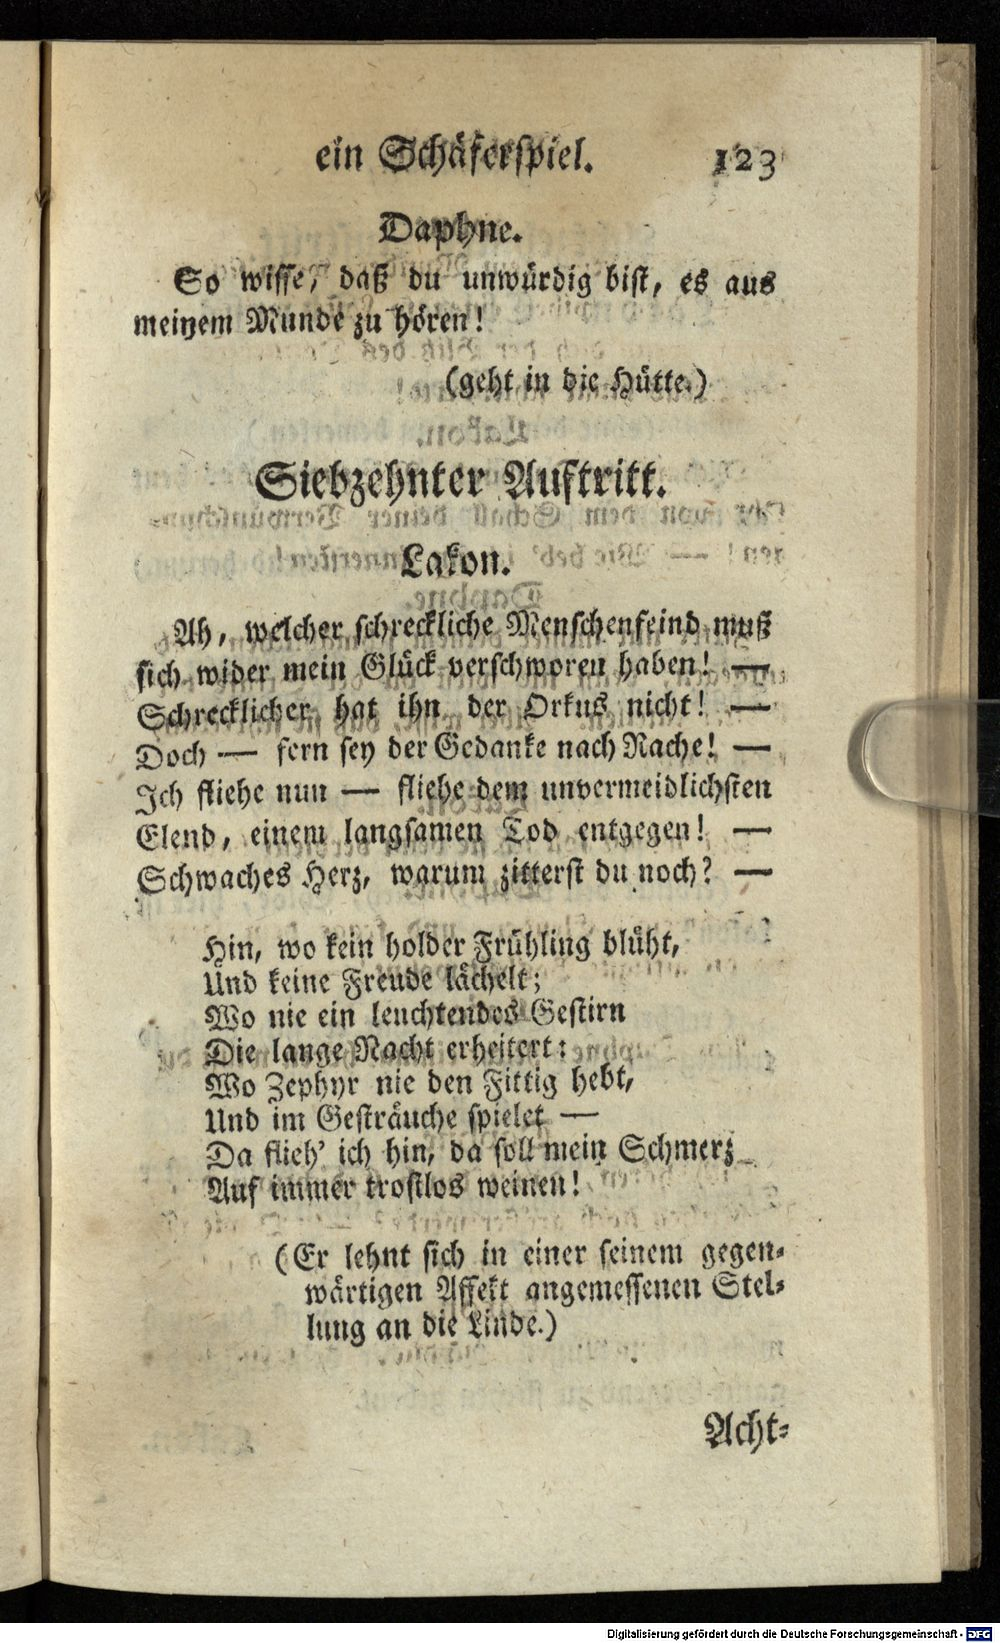 ein Schäferspiel. 123
Daphne.
So wisse, daß du unwürdig bist, es aus
meinem Munde zu hören!
(geht in die Hütte.)
Siebzehnter Auftritt.
Lakon.
Ah, welcher schreckliche Menschenfeind muß
sich wider mein Glück verschworen haben! —
Schrecklicher hat ihn der Orkus nicht! —
Doch — fern sey der Gedanke nach Rache! —
Ich fliehe nun — fliehe dem unvermeidlichsten
Elend, einem langsamen Tod entgegen! —
Schwaches Herz, warum zitterst du noch? —
Hin, wo kein holder Frühling blüht,
Und keine Freude lächelt;
Wo nie ein leuchtendes Gestirn
Die lange Nacht erheitert:
Wo Zephyr nie den Fittig hebt,
Und im Gesträuche spielet —
Da flieh' ich hin, da soll mein Schmerz
Auf immer trostlos weinen!
(Er lehnt sich in einer seinem gegen-
wärtigen Affekt angemessenen Stel-
lung an die Linde.)
Acht-
Digitalisierung gefördert durch die Deutsche Forschungsgemeinschaft - DFG